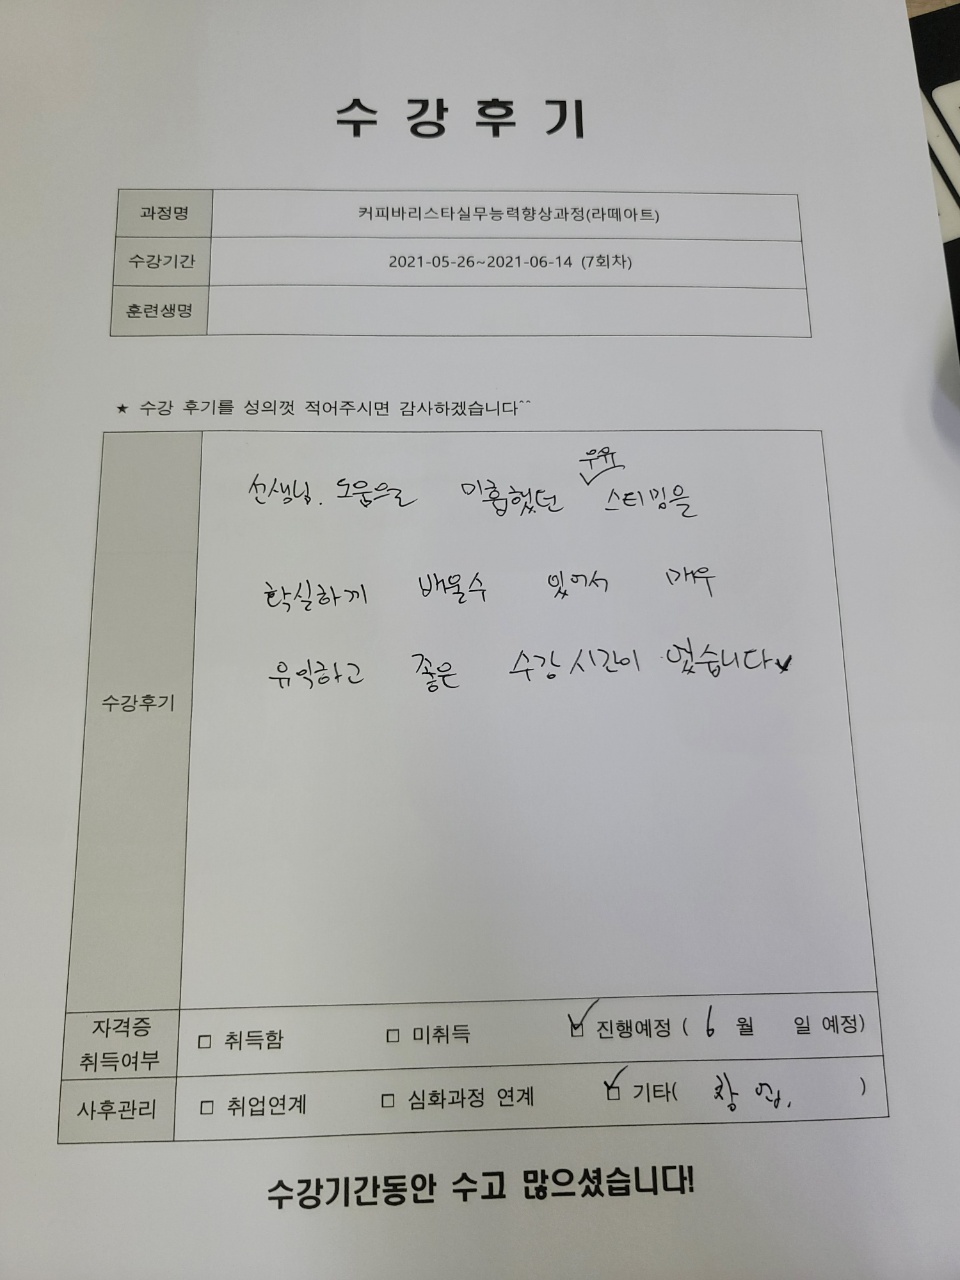 수 강 후 기
과정명 커피바리스타실무능력향상과정(라떼아트)
수강기간 2021-05-26~2021-06-14 (7회차)
훈련생명
★ 수강 후기를 성의껏 적어주시면 감사하겠습니다^^
우유
선생님. 도움으로 미흡했던 ✓ 스티밍을
확실하게 배울수 있어서 매우
수강후기
유익하고 좋은 수강 시간이 었습니다
자격증 취득여부 □ 취득함 □ 미취득 ☑ 진행예정 ( 6 월 일 예정)
사후관리 □ 취업연계 □ 심화과정 연계 ☑ 기타( 창 업. )
수강기간동안 수고 많으셨습니다!